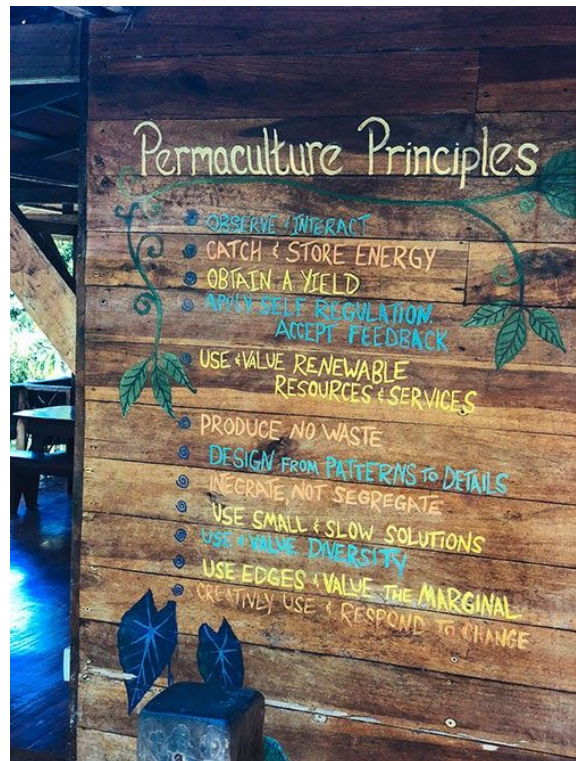 Permaculture Principles
OBSERVE & INTERACT
CATCH & STORE ENERGY
OBTAIN A YIELD
APPLY SELF REGULATION
ACCEPT FEEDBACK
USE & VALUE RENEWABLE
RESOURCES & SERVICES
PRODUCE NO WASTE
DESIGN FROM PATTERNS TO DETAILS
INEGRATE, NOT SEGREGATE
USE SMALL & SLOW SOLUTIONS
USE & VALUE DIVERSITY
USE EDGES & VALUE THE MARGINAL
CREATIVLY USE & RESPOND TO CHANGE